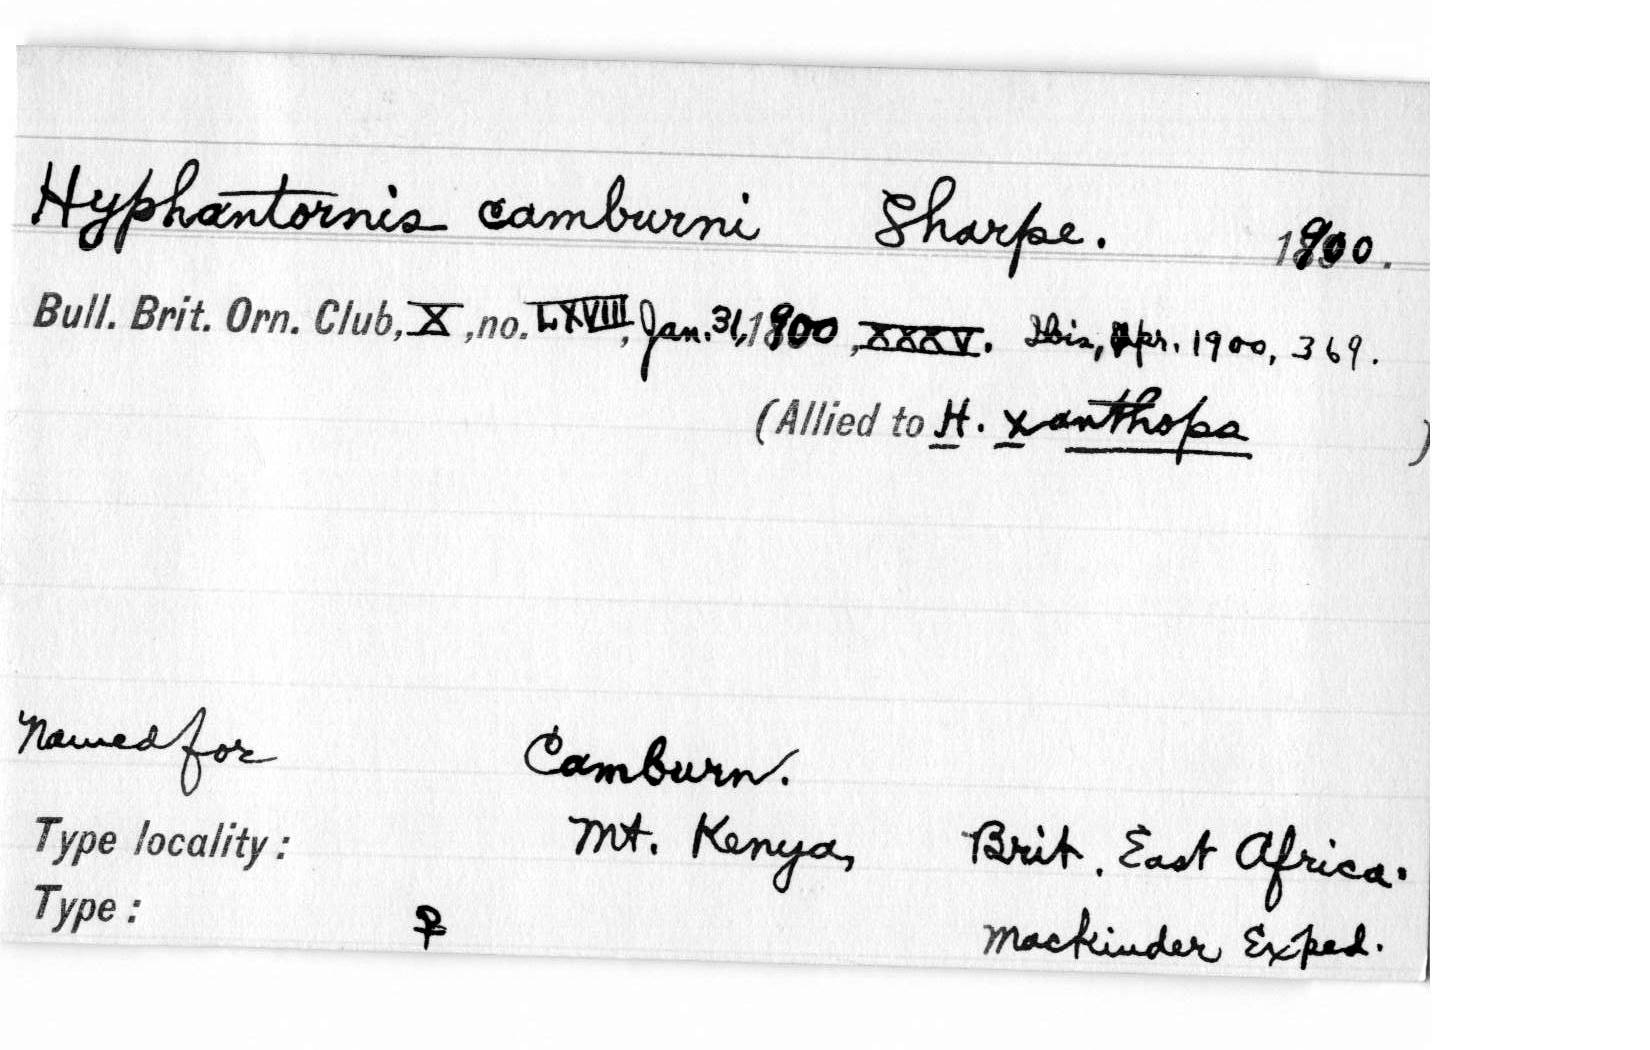 Hyphantornis camburni Sharpe. 1900.
Bull. Brit. Orn. Club, X, no. LXVIII, Jan. 31, 1900, XXXV. Ibis, Apr. 1900, 369.
(Allied to H. xanthopa )
Named for Camburn.
Type locality: Mt. Kenya, Brit. East Africa.
Type: ♀ Mackinder Exped.